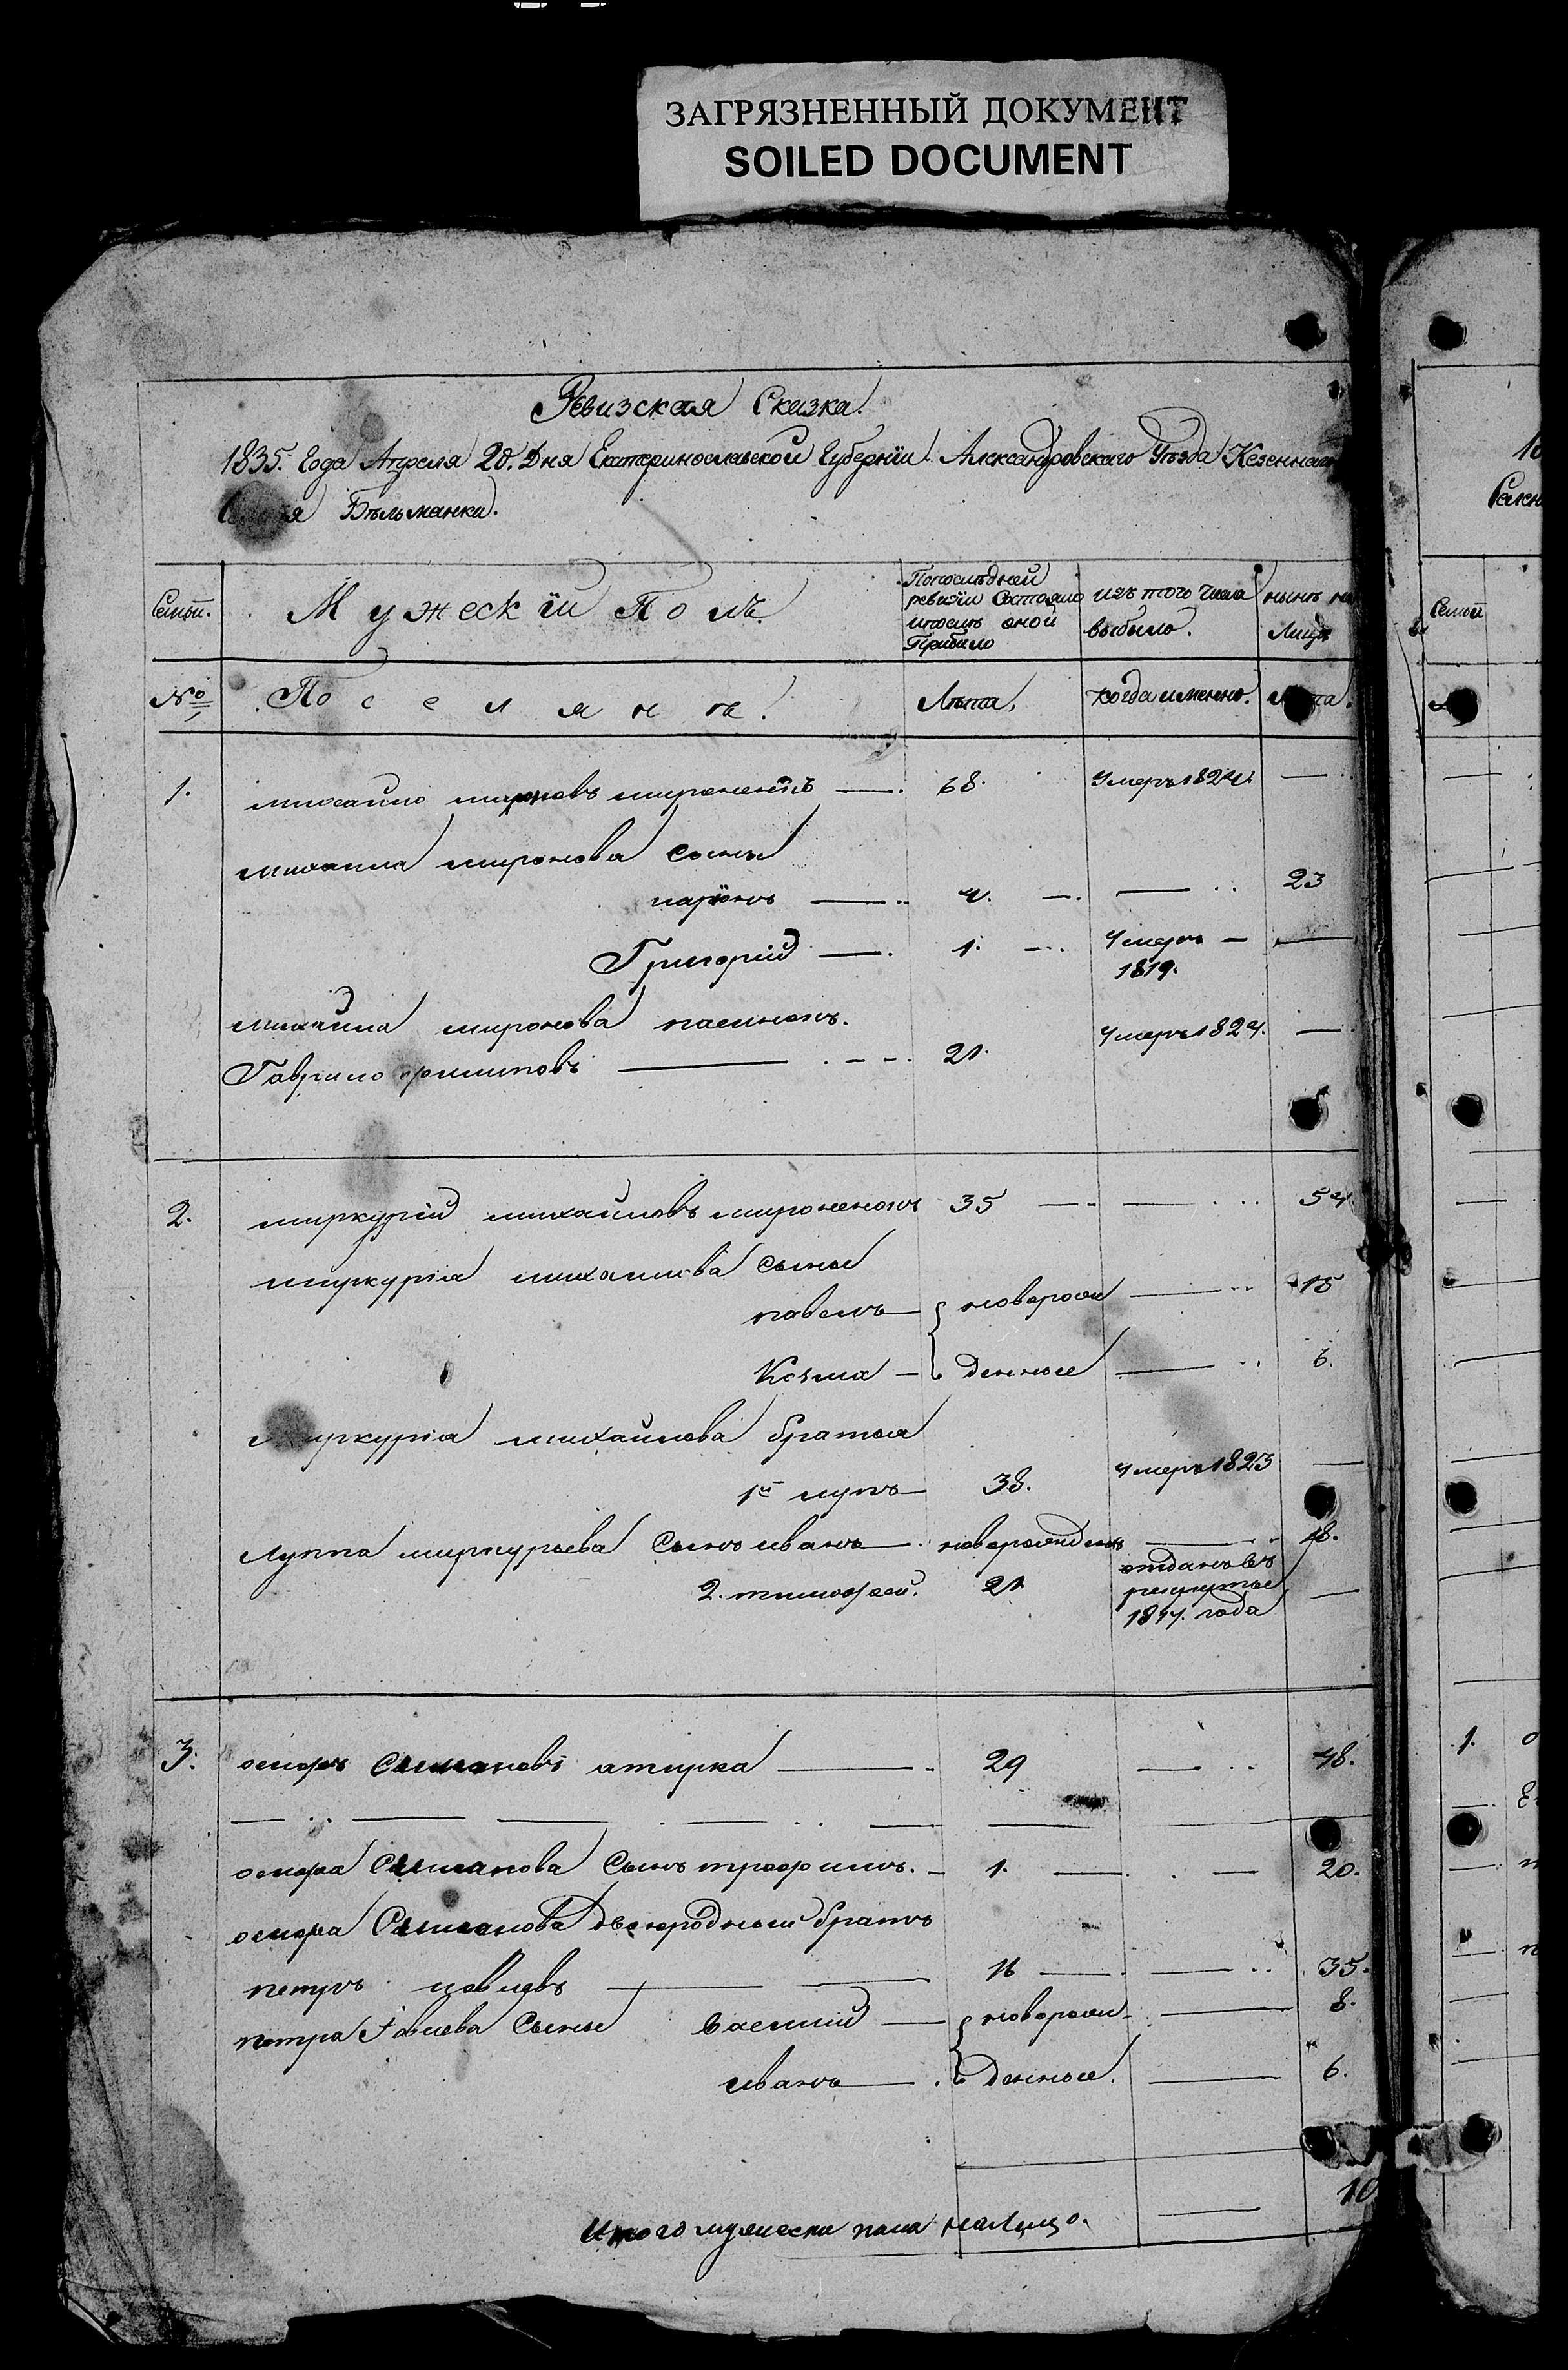 ЗАГРЯЗНЕННЫЙ ДОКУМЕНТ
SOILED DOCUMENT
Ревизская Сказка.
1835. Года Апреля 20. Дня Екатеринославской Губернїи Александровскаго Уѣзда Казеннаго
Бѣльманки.
Семьи. Мужескїй Полъ.
Попослѣдней
ревизїи Состояло
ипослѣ оной
Прибыло
изъ того числа
выбыло.
нынѣ на
Лицо
№ Поселяне. Лѣта, Когда именно.
1. михайло мироновъ мироненко 68. Умеръ 1824.
михаила миронова сыны
ларїонъ 4. 23
Григорій 1. Умеръ
1819.
михайла миронова пасынокъ.
Гаврило филиповъ 21. Умеръ 1824.
2. миркурій михайловъ мироненко 35 54
миркурія михаилова сыны
павелъ новорож 15
Козма денные 6.
миркурія михайлова братья
1й лупъ 38. Умеръ 1823
Луппа миркурьева Сынъ иванъ новорожденъ 18.
2. тимофей. 21 отданъ въ
рекруты
1817. года
3. осипъ Симановъ 29 48.
осипа Симанова Сынъ трофимъ. 1. 20.
осипа Симанова двоюродный братъ
петръ 16 35.
петра Сыны василій новорож 8.
иванъ денные. 6.
Итого мужеска пола налицо. 10
Семьи
1.